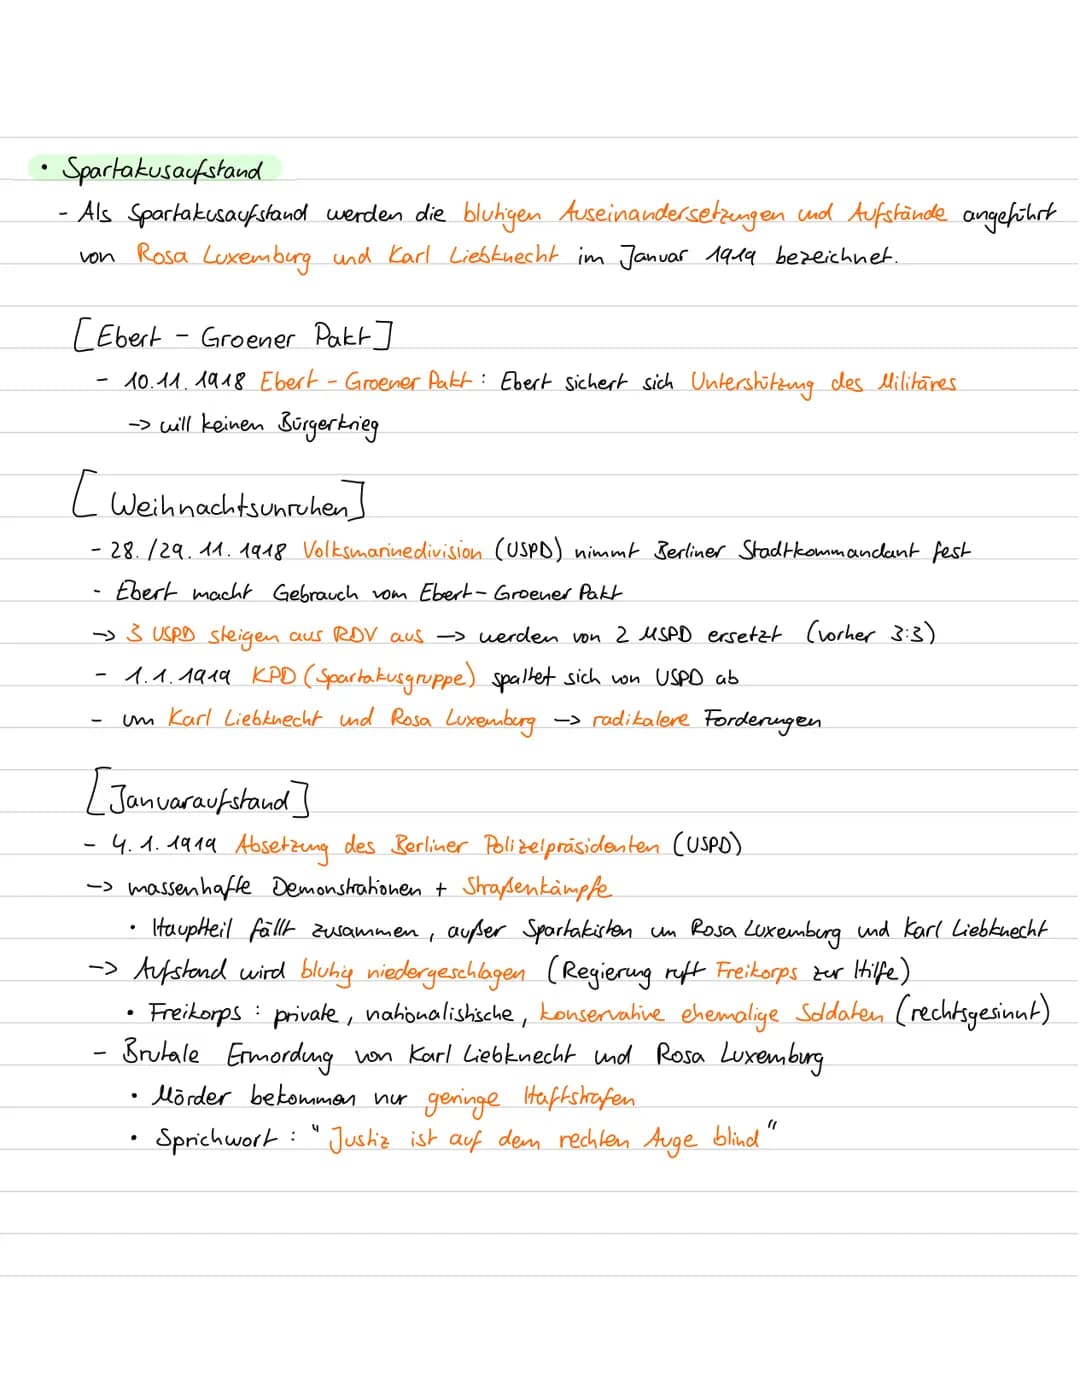 • Spartakusaufstand
- Als Spartakusaufstand werden die blutigen Auseinandersetzungen und Aufstände angeführt
von Rosa Luxemburg und Karl Liebknecht im Januar 1919 bezeichnet.
[Ebert - Groener Pakt]
- 10.11.1918 Ebert - Groener Pakt : Ebert sichert sich Unterstützung des Militäres
-> will keinen Bürgerkrieg
[Weihnachtsunruhen]
- 28./29.11.1918 Volksmarinedivision (USPD) nimmt Berliner Stadtkommandant fest
- Ebert macht Gebrauch vom Ebert-Groener Pakt
-> 3 USPD steigen aus RDV aus -> werden von 2 MSPD ersetzt (vorher 3:3)
- 1.1.1919 KPD (Spartakusgruppe) spaltet sich von USPD ab
- um Karl Liebknecht und Rosa Luxemburg -> radikalere Forderungen
[Januaraufstand]
- 4.1.1919 Absetzung des Berliner Polizeipräsidenten (USPD)
-> massenhafte Demonstrationen + Straßenkämpfe
• Hauptteil fällt zusammen, außer Spartakisten um Rosa Luxemburg und Karl Liebknecht
-> Aufstand wird blutig niedergeschlagen (Regierung ruft Freikorps zur Hilfe)
• Freikorps : private, nationalistische, konservative ehemalige Soldaten (rechtsgesinnt)
- Brutale Ermordung von Karl Liebknecht und Rosa Luxemburg
• Mörder bekommen nur geringe Haftstrafen
• Sprichwort : "Justiz ist auf dem rechten Auge blind"